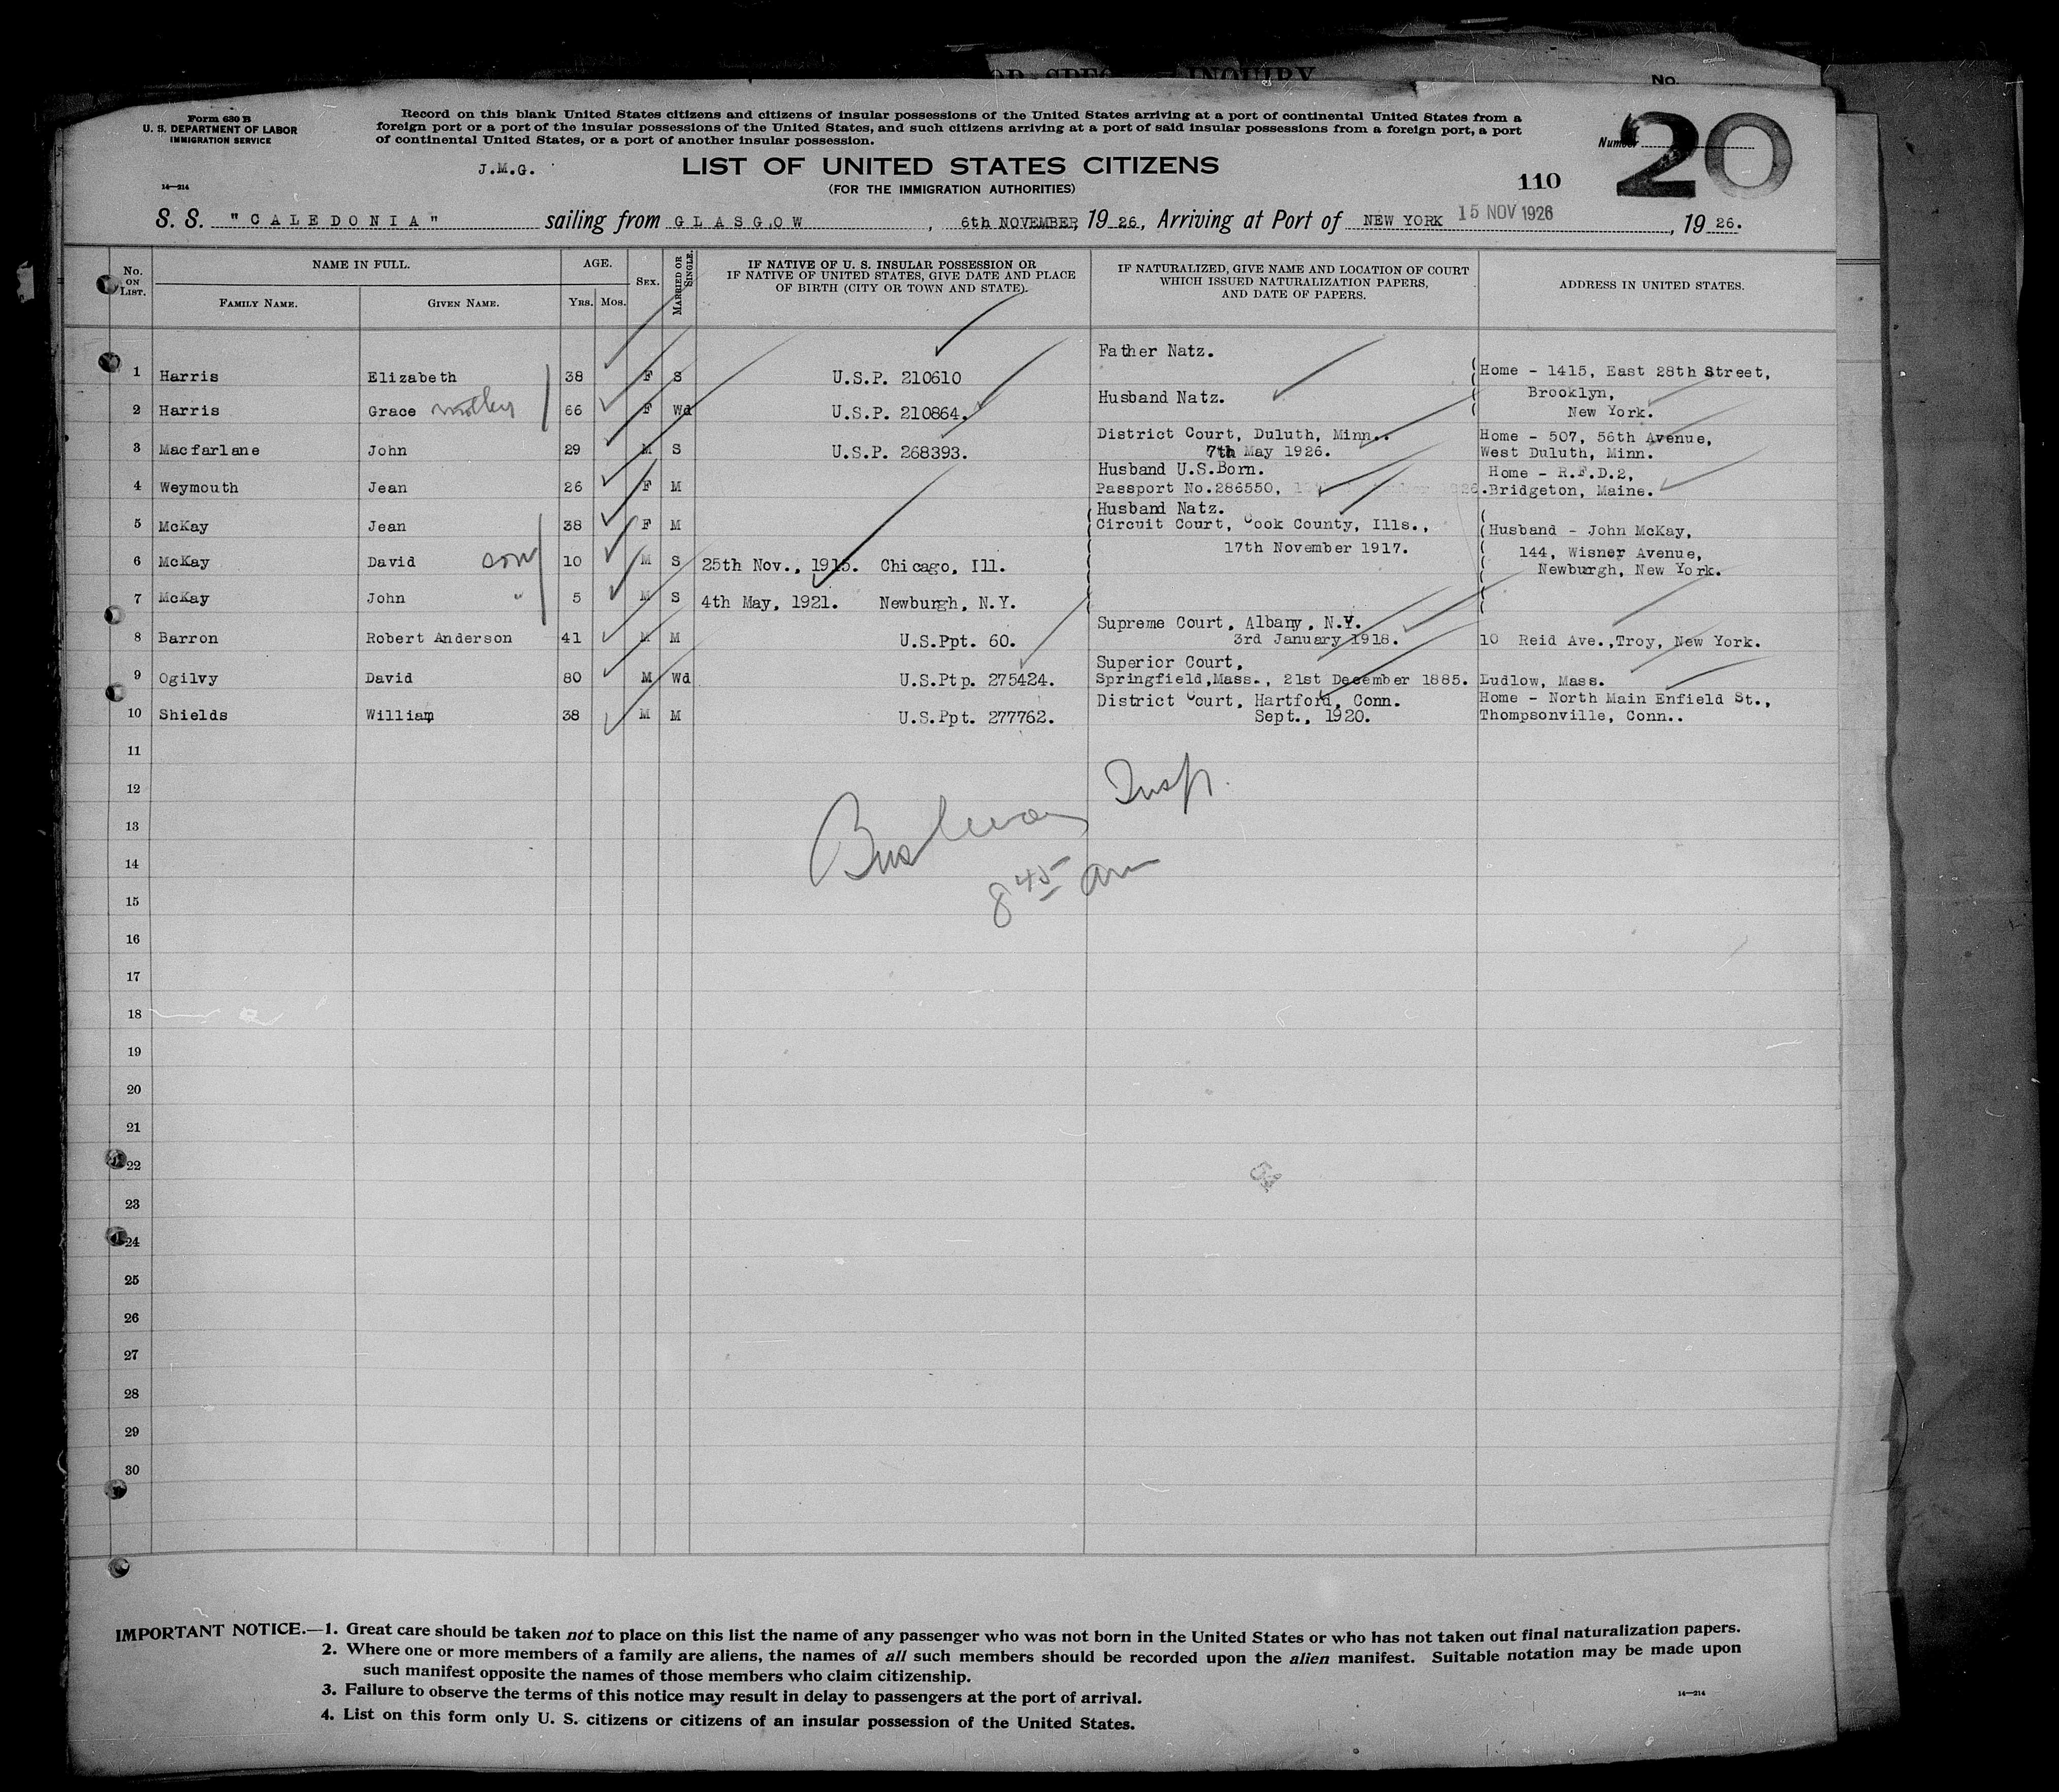 OR SPEC INQUIRY
No.
Form 630 B
U. S. DEPARTMENT OF LABOR
IMMIGRATION SERVICE
14—214
Record on this blank United States citizens and citizens of insular possessions of the United States arriving at a port of continental United States from a
foreign port or a port of the insular possessions of the United States, and such citizens arriving at a port of said insular possessions from a foreign port, a port
of continental United States, or a port of another insular possession.
J.M.G.
LIST OF UNITED STATES CITIZENS
(FOR THE IMMIGRATION AUTHORITIES)
110
Number 20
S. S. "CALEDONIA" sailing from GLASGOW, 6th NOVEMBER, 19 26, Arriving at Port of NEW YORK 15 NOV 1926, 19 26.
No. ON LIST. NAME IN FULL. FAMILY NAME. GIVEN NAME. AGE. YRS. MOS. SEX. MARRIED OR SINGLE. IF NATIVE OF U. S. INSULAR POSSESSION OR IF NATIVE OF UNITED STATES, GIVE DATE AND PLACE OF BIRTH (CITY OR TOWN AND STATE). IF NATURALIZED, GIVE NAME AND LOCATION OF COURT WHICH ISSUED NATURALIZATION PAPERS, AND DATE OF PAPERS. ADDRESS IN UNITED STATES.
Father Natz.
1 Harris Elizabeth 38 F S U.S.P. 210610 Home - 1415, East 28th Street,
Husband Natz. Brooklyn,
2 Harris Grace mother 66 F Wd U.S.P. 210864. New York.
District Court, Duluth, Minn.. Home - 507, 56th Avenue,
3 Macfarlane John 29 M S U.S.P. 268393. 7th May 1926. West Duluth, Minn.
Husband U.S.Born. Home - R.F.D.2,
4 Weymouth Jean 26 F M Passport No.286550, Bridgeton, Maine.
Husband Natz.
5 McKay Jean 38 F M Circuit Court, Cook County, Ills., Husband - John McKay,
17th November 1917. 144, Wisner Avenue,
6 McKay David son 10 M S 25th Nov., 1915. Chicago, Ill. Newburgh, New York.
7 McKay John " 5 M S 4th May, 1921. Newburgh, N.Y.
Supreme Court, Albany, N.Y.
8 Barron Robert Anderson 41 M M U.S.Ppt. 60. 3rd January 1918. 10 Reid Ave.,Troy, New York.
Superior Court,
9 Ogilvy David 80 M Wd U.S.Ptp. 275424. Springfield,Mass., 21st December 1885. Ludlow, Mass.
District Court, Hartford, Conn. Home - North Main Enfield St.,
10 Shields William 38 M M U.S.Ppt. 277762. Sept., 1920. Thompsonville, Conn..
11
12
Insp.
13
14
8 45 am
15
16
17
18
19
20
21
22
23
24
25
26
27
28
29
30
IMPORTANT NOTICE.—1. Great care should be taken not to place on this list the name of any passenger who was not born in the United States or who has not taken out final naturalization papers.
2. Where one or more members of a family are aliens, the names of all such members should be recorded upon the alien manifest. Suitable notation may be made upon
such manifest opposite the names of those members who claim citizenship.
3. Failure to observe the terms of this notice may result in delay to passengers at the port of arrival.
4. List on this form only U. S. citizens or citizens of an insular possession of the United States.
14—214